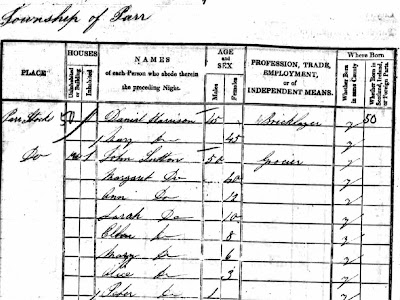 Township of Parr
PLACE
HOUSES
Uninhabited or Building
Inhabited
NAMES
of each Person who abode therein
the preceding Night.
AGE
and
SEX
Males
Females
PROFESSION, TRADE,
EMPLOYMENT,
or of
INDEPENDENT MEANS.
Where Born
Whether Born in same County
Whether Born in Scotland, Ireland, or Foreign Parts.
Parr Stocks 1 Daniel Harrison 45 Bricklayer y 50
Mary Do 45 y
Do 1 John Sutton 50 Grocier y
Margaret Do 40 y
Ann Do 12 y
Sarah Do 10 y
Ellen Do 8 y
Mary Do 6 y
Alice Do 3 y
Peter Do 1 y